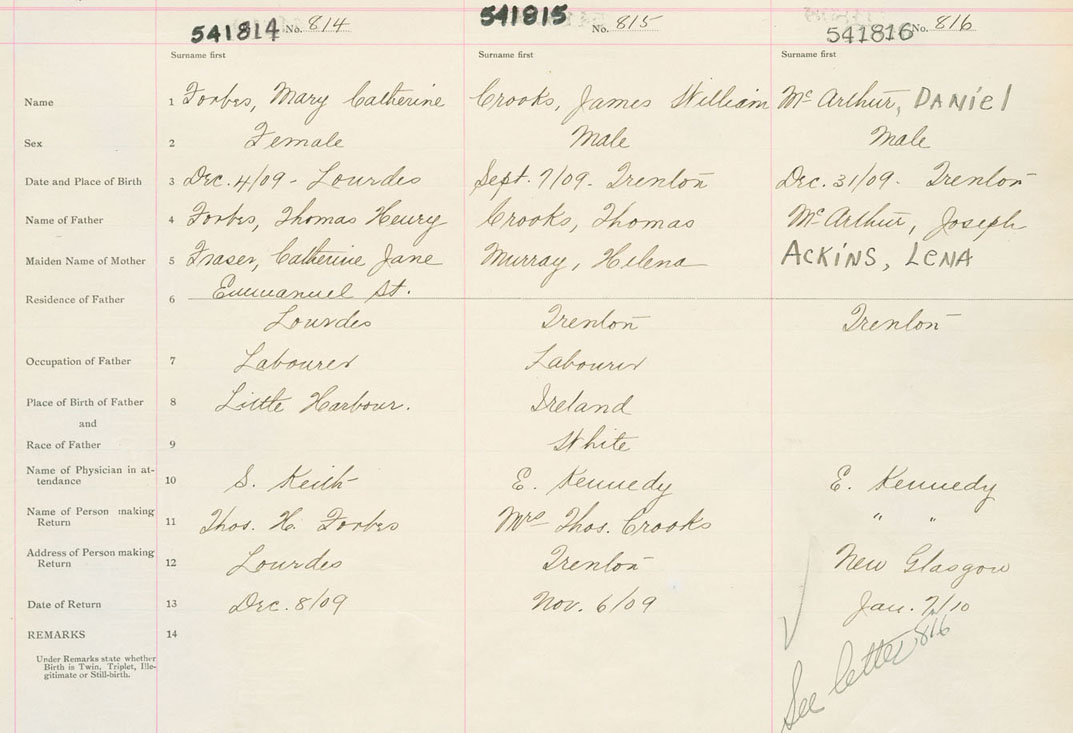 541814 No. 814 541815 No. 815 541816 No. 816
Surname first Surname first Surname first
Name 1 Forbes, Mary Catherine Crooks, James William Mc Arthur, DANiel
Sex 2 Female Male Male
Date and Place of Birth 3 Dec. 4/09 - Lourdes Sept. 7/09. Trenton Dec. 31/09. Trenton
Name of Father 4 Forbes, Thomas Henry Crooks, Thomas Mc Arthur, Joseph
Maiden Name of Mother 5 Fraser, Catherine Jane Murray, Helena ACKiNS, LENA
Emmanuel St.
Residence of Father 6
Lourdes Trenton Trenton
Occupation of Father 7 Labourer Labourer
Place of Birth of Father 8 Little Harbour. Ireland
and
Race of Father 9 White
Name of Physician in at-
tendance 10 S. Keith E. Kennedy E. Kennedy
Name of Person making
Return 11 Thos. H. Forbes Mrs Thos. Crooks " "
Address of Person making
Return 12 Lourdes Trenton New Glasgow
Date of Return 13 Dec. 8/09 Nov. 6/09 Jan. 7/10
REMARKS 14
Under Remarks state whether
Birth is Twin, Triplet, Ille-
gitimate or Still-birth.
See letter 816